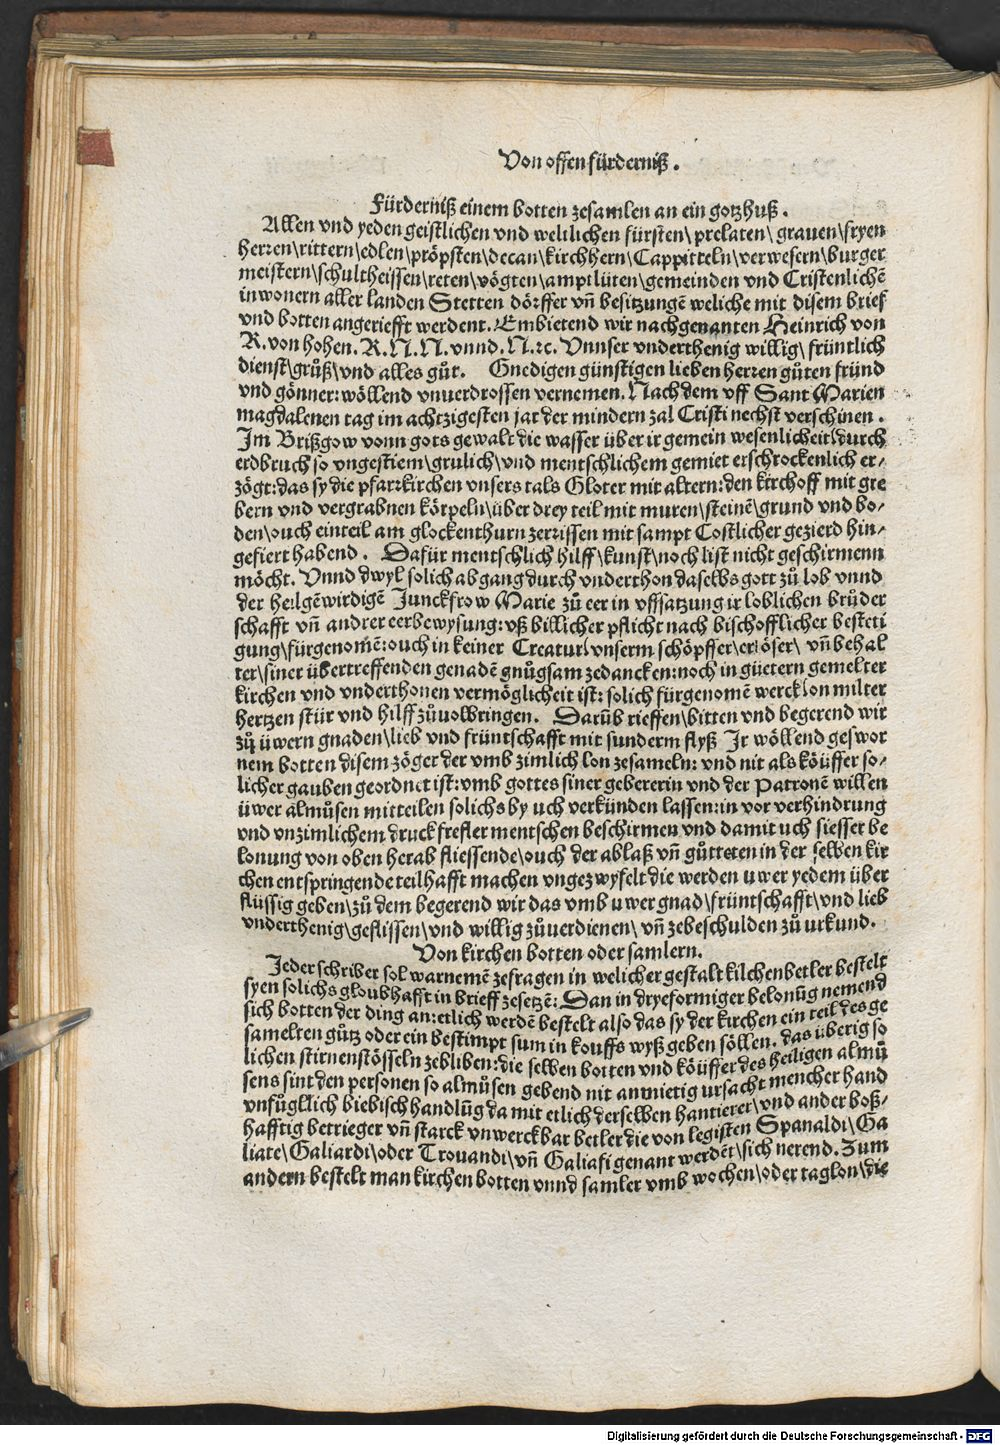 Von offen fürderniß.
Fürderniß einem botten zesamlen an ein gotzhuß.
Allen vnd yeden geistlichen vnd weltlichen fürsten\ prelaten\ grauen\fryen
herren\rittern\edlen\pröpsten\decan\kirchhern\Cappitteln\verwesern\burger
meistern\schultheissen\reten\vögten\amptlüten\gemeinden vnd Cristenlichē
inwonern aller landen Stetten dörffer vn̄ besitzungē weliche mit disem brief
vnd botten angeriefft werdent. Embietend wir nachgenanten Heinrich von
R. von hohen. R. N. N. vnnd. N. ꝛc. Vnnser vnderthenig willig\ früntlich
dienst\grůß\vnd alles gůt. Gnedigen günstigen lieben herren gůten fründ
vnd gönner: wöllend vnuerdrossen vernemen. Nach dem vff Sant Marien
magdalenen tag im achtzigesten jar der mindern zal Cristi nechst verschinen.
Im Brißgow vonn gots gewalt die wasser über ir gemein wesenlicheit\durch
erdbruch so vngestiem\grulich\vnd mentschlichem gemiet erschrockenlich er⸗
zögt: das sy die pfarrkirchen vnsers tals Gloter mit altern: den kirchoff mit gre
bern vnd vergrabnen körpeln\über drey teil mit muren\steinē\grund vnd bo⸗
den\ouch ein teil am glockenthurn zerrissen mit sampt Costlicher gezierd hin⸗
gefiert habend. Dafür mentschlich hilff\kunst\noch list nicht geschirmenn
möcht. Vnnd dwyl solich abgang durch vnderthon daselbs gott zů lob vnnd
der heilgē wirdigē Junckfrow Marie zů eer in vffsatzung ir loblichen brůder
schafft vn̄ andrer eerbewysung: vß billicher pflicht nach bischofflicher besteti
gung\fürgenomē: ouch in keiner Creatur\vnserm schöpffer\erlöser\ vn̄ behal
ter\siner übertreffenden genadē gnůgsam zedancken: noch in güetern gemelter
kirchen vnd vnderthonen vermöglicheit ist: solich fürgenomē werck\on milter
hertzen stür vnd hilff zůuolbringen. Darūb rieffen\bitten vnd begerend wir
zů üwern gnaden\lieb vnd früntschafft mit sunderm flyß Ir wöllend geswor
nem botten disem zöger der vmb zimlich lon zesameln: vnd nit als köüffer so⸗
licher gauben geordnet ist: vmb gottes siner gebererin vnd der Patronē willen
üwer almůsen mitteilen solichs by uch verkünden lassen: in vor verhindrung
vnd vnzimlichem druck frefler mentschen beschirmen vnd damit uch siesser be
lonung von oben herab fliessende\ouch der ablaß vn̄ gůtteten in der selben kir
chen entspringende teilhafft machen vngezwyfelt die werden uwer yedem über
flüssig geben\zů dem begerend wir das vmb uwer gnad\früntschafft\vnd lieb
vnderthenig\geflissen\vnd willig zůuerdienen\ vn̄ zebeschulden zů urkund.
Von kirchen botten oder samlern.
Jeder schriber sol warnemē zefragen in welicher gestalt kilchenbetler bestelt
syen solichs gloubhafft in brieff zesetzē: Dan in dryeformiger belonūg nemend
sich botten der ding an: etlich werdē bestelt also das sy der kirchen ein teil des ge
samelten gůtz oder ein bestimpt sum in kouffs wyß geben söllen. das überig so
lichen stirnenstösseln zebliben: die selben botten vnd köüffer des heiligen almů
sens sint den personen so almůsen gebend nit anmietig ursacht mencher hand
vnfůgllich biebisch handlūg da mit etlich derselben hantierer\vnd ander boß⸗
hafftig betrieger vn̄ starck vnwerckbar betler die von legisten Spanaldi\Ga
liate\Galiardi\oder Trouandi\vn̄ Galiafi genant werdēt\sich nerend. Zum
andern bestelt man kirchen botten vnnd samler vmb wochen\oder taglon\die
Digitalisierung gefördert durch die Deutsche Forschungsgemeinschaft - DFG